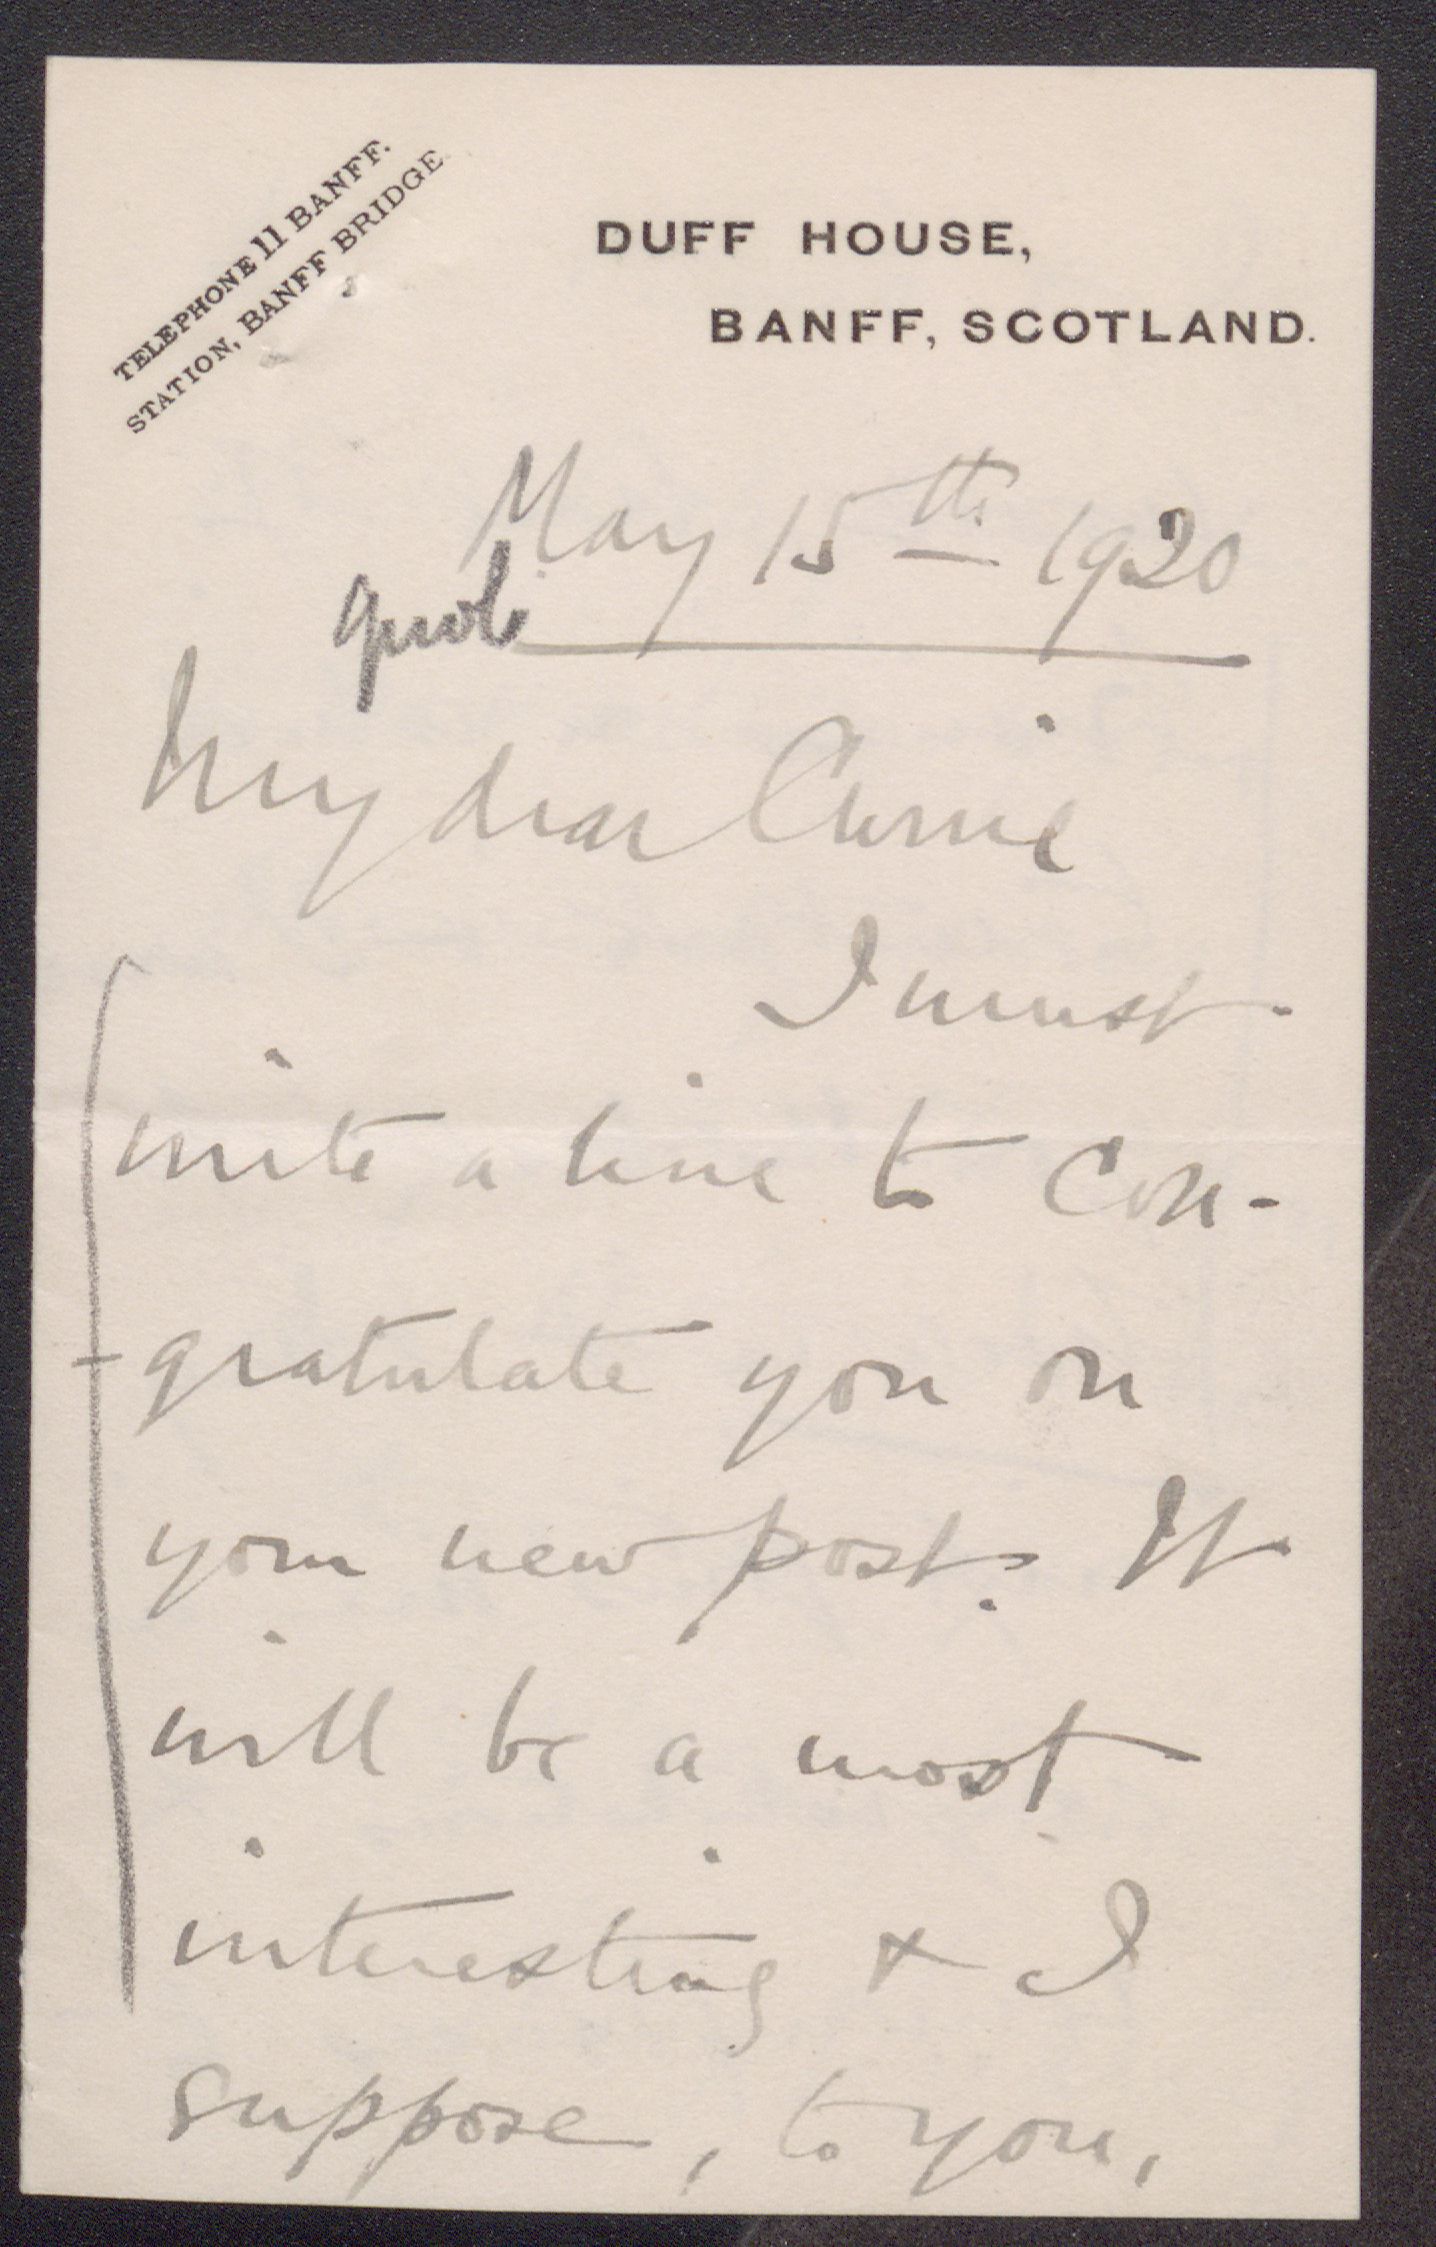 TELEPHONE 11 BANFF.
STATION, BANFF BRIDGE
DUFF HOUSE,
BANFF, SCOTLAND.
May 15th 1920
quote
My dear Currie
I must
write a line to con-
gratulate you on
your new post. It
will be a most
interesting & I
suppose, to you,